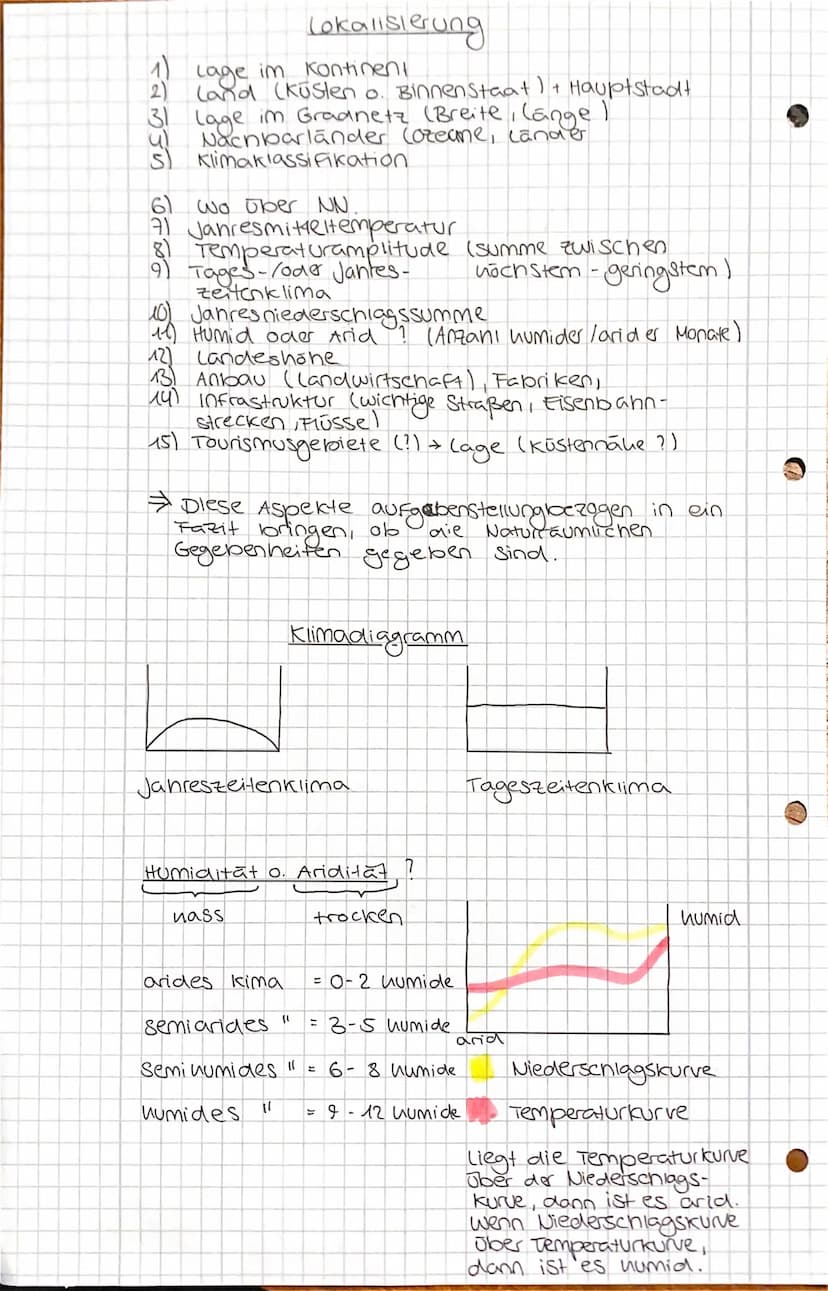 Lokalisierung
1) Lage im Kontinent
2) Land (Küsten o. Binnenstaat) + Hauptstadt
3) Lage im Gradnetz (Breite, Länge)
4) Nachbarländer (Ozeane, Länder
5) Klimaklassifikation
6) Wo über NN.
7) Jahresmitteltemperatur
8) Temperaturamplitude (summe zwischen
höchstem - geringstem)
9) Tages-/oder Jahres-
zeitenklima
10) Jahresniederschlagssumme
11) Humid oder Arid ? (Anzahl humider/arider Monate)
12) Landeshöhe
13) Anbau (Landwirtschaft), Fabriken,
14) Infrastruktur (wichtige Straßen, Eisenbahn-
strecken, Flüsse)
15) Tourismusgebiete (?) → Lage (Küstennähe ?)
⇒ Diese Aspekte aufgabenstellungbezogen in ein
Fazit bringen, ob die Naturräumlichen
Gegebenheiten gegeben sind.
Klimadiagramm
Jahreszeitenklima
Tageszeitenklima
Humidität o. Aridität ?
nass
trocken
humid
arides Kima = 0-2 humide
semiarides " = 3-5 humide
arid
Semihumides " = 6-8 humide
humides " = 9-12 humide
Niederschlagskurve
Temperaturkurve
Liegt die Temperaturkurve
über der Niederschlags-
kurve, dann ist es arid.
Wenn Niederschlagskurve
über Temperaturkurve,
dann ist es humid.